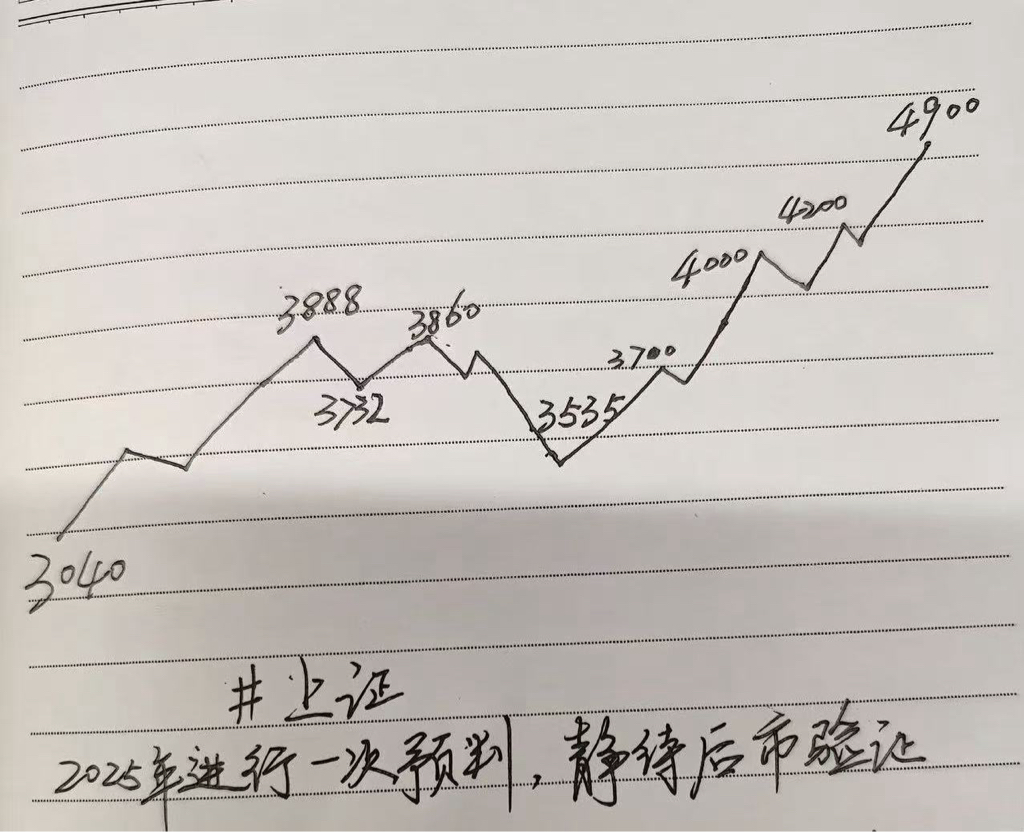 4900
4200
4000
3888
3860
3700
3732
3535
3040
#上证
2025年进行一次预判，静待后市验证